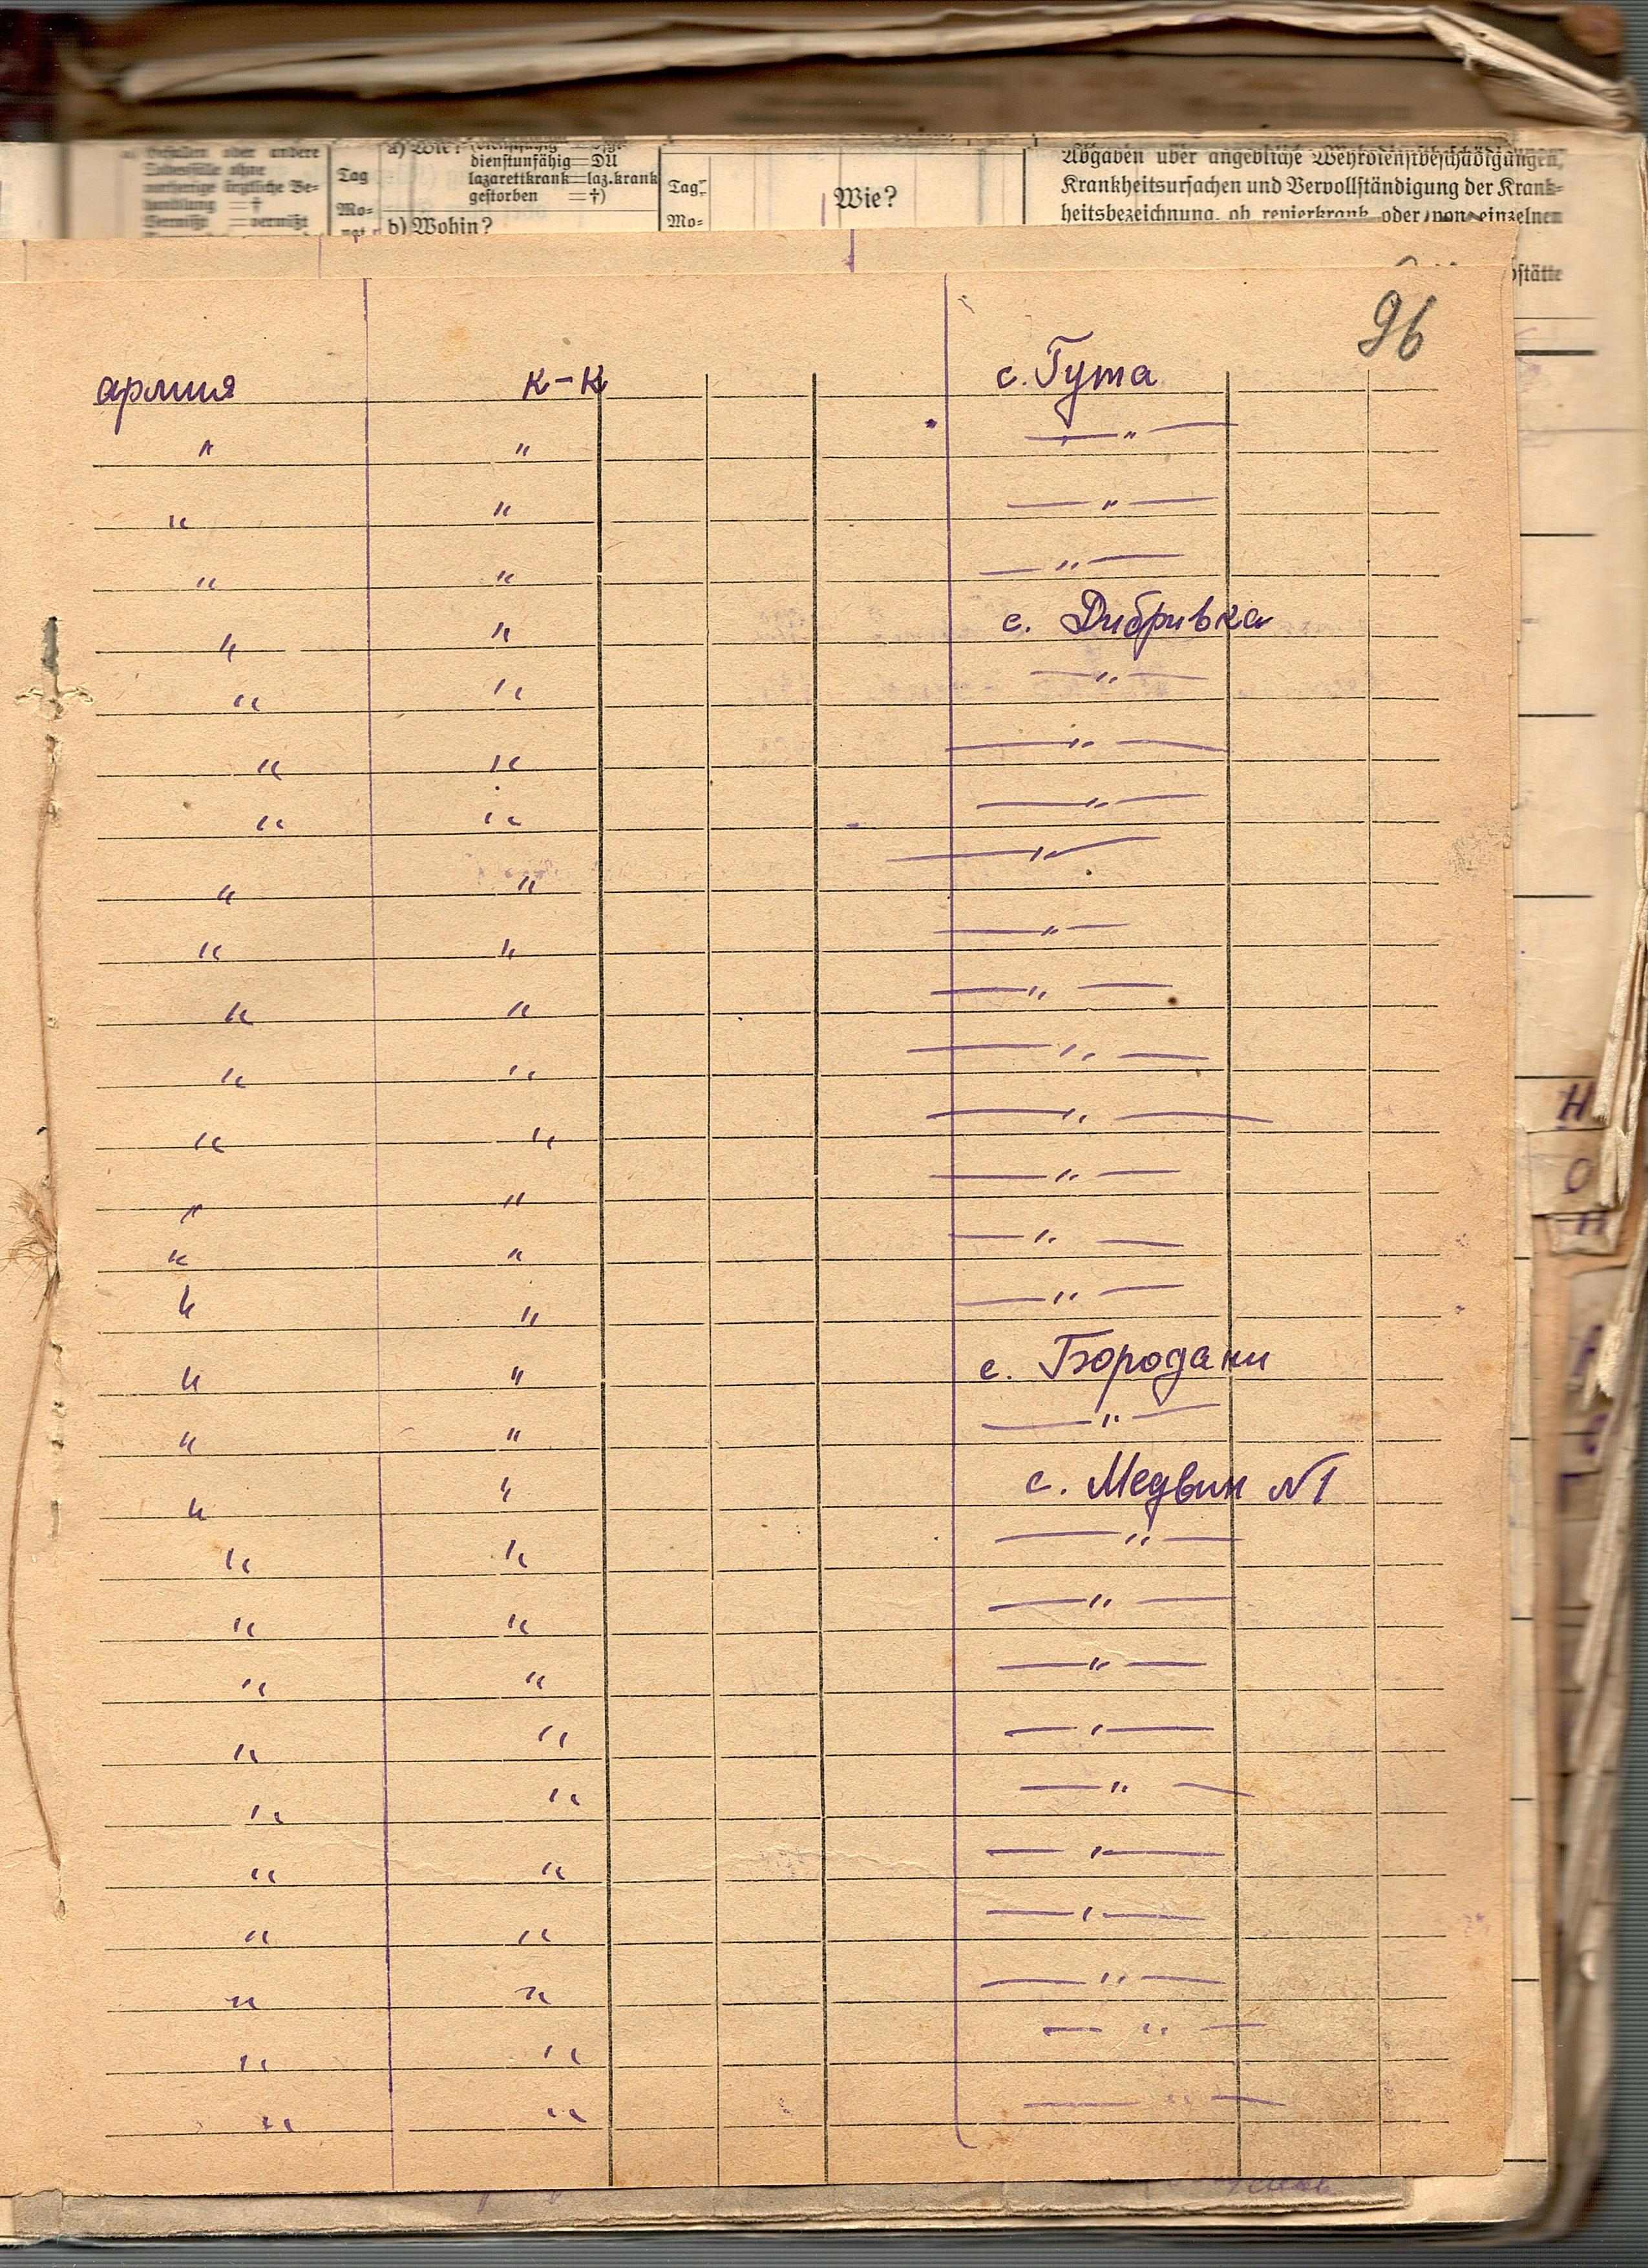 dienstunfähig = DU
lazarettkrank = laz.krank
gestorben = †)
b) Wohin?
Tag
Mo-
Tag
Mo-
Wie?
Abgaben über angebliche Wehrdienstbeschädigungen,
Krankheitsursachen und Vervollständigung der Krank-
heitsbezeichnung, ob revierkrank oder von einzelnen
96
армия к-к с. Гута
" " — " —
" " — " —
" " — " —
" " с. Дибривка
" " — " —
" " — " —
" " — " —
" " — " —
" " — " —
" " — " —
" " — " —
" " — " —
" " — " —
" " — " —
" " — " —
" " с. Бородани
" " — " —
" " с. Медвин №1
" " — " —
" " — " —
" " — " —
" " — " —
" " — " —
" " — " —
" " — " —
" " — " —
" " — " —
" " — " —